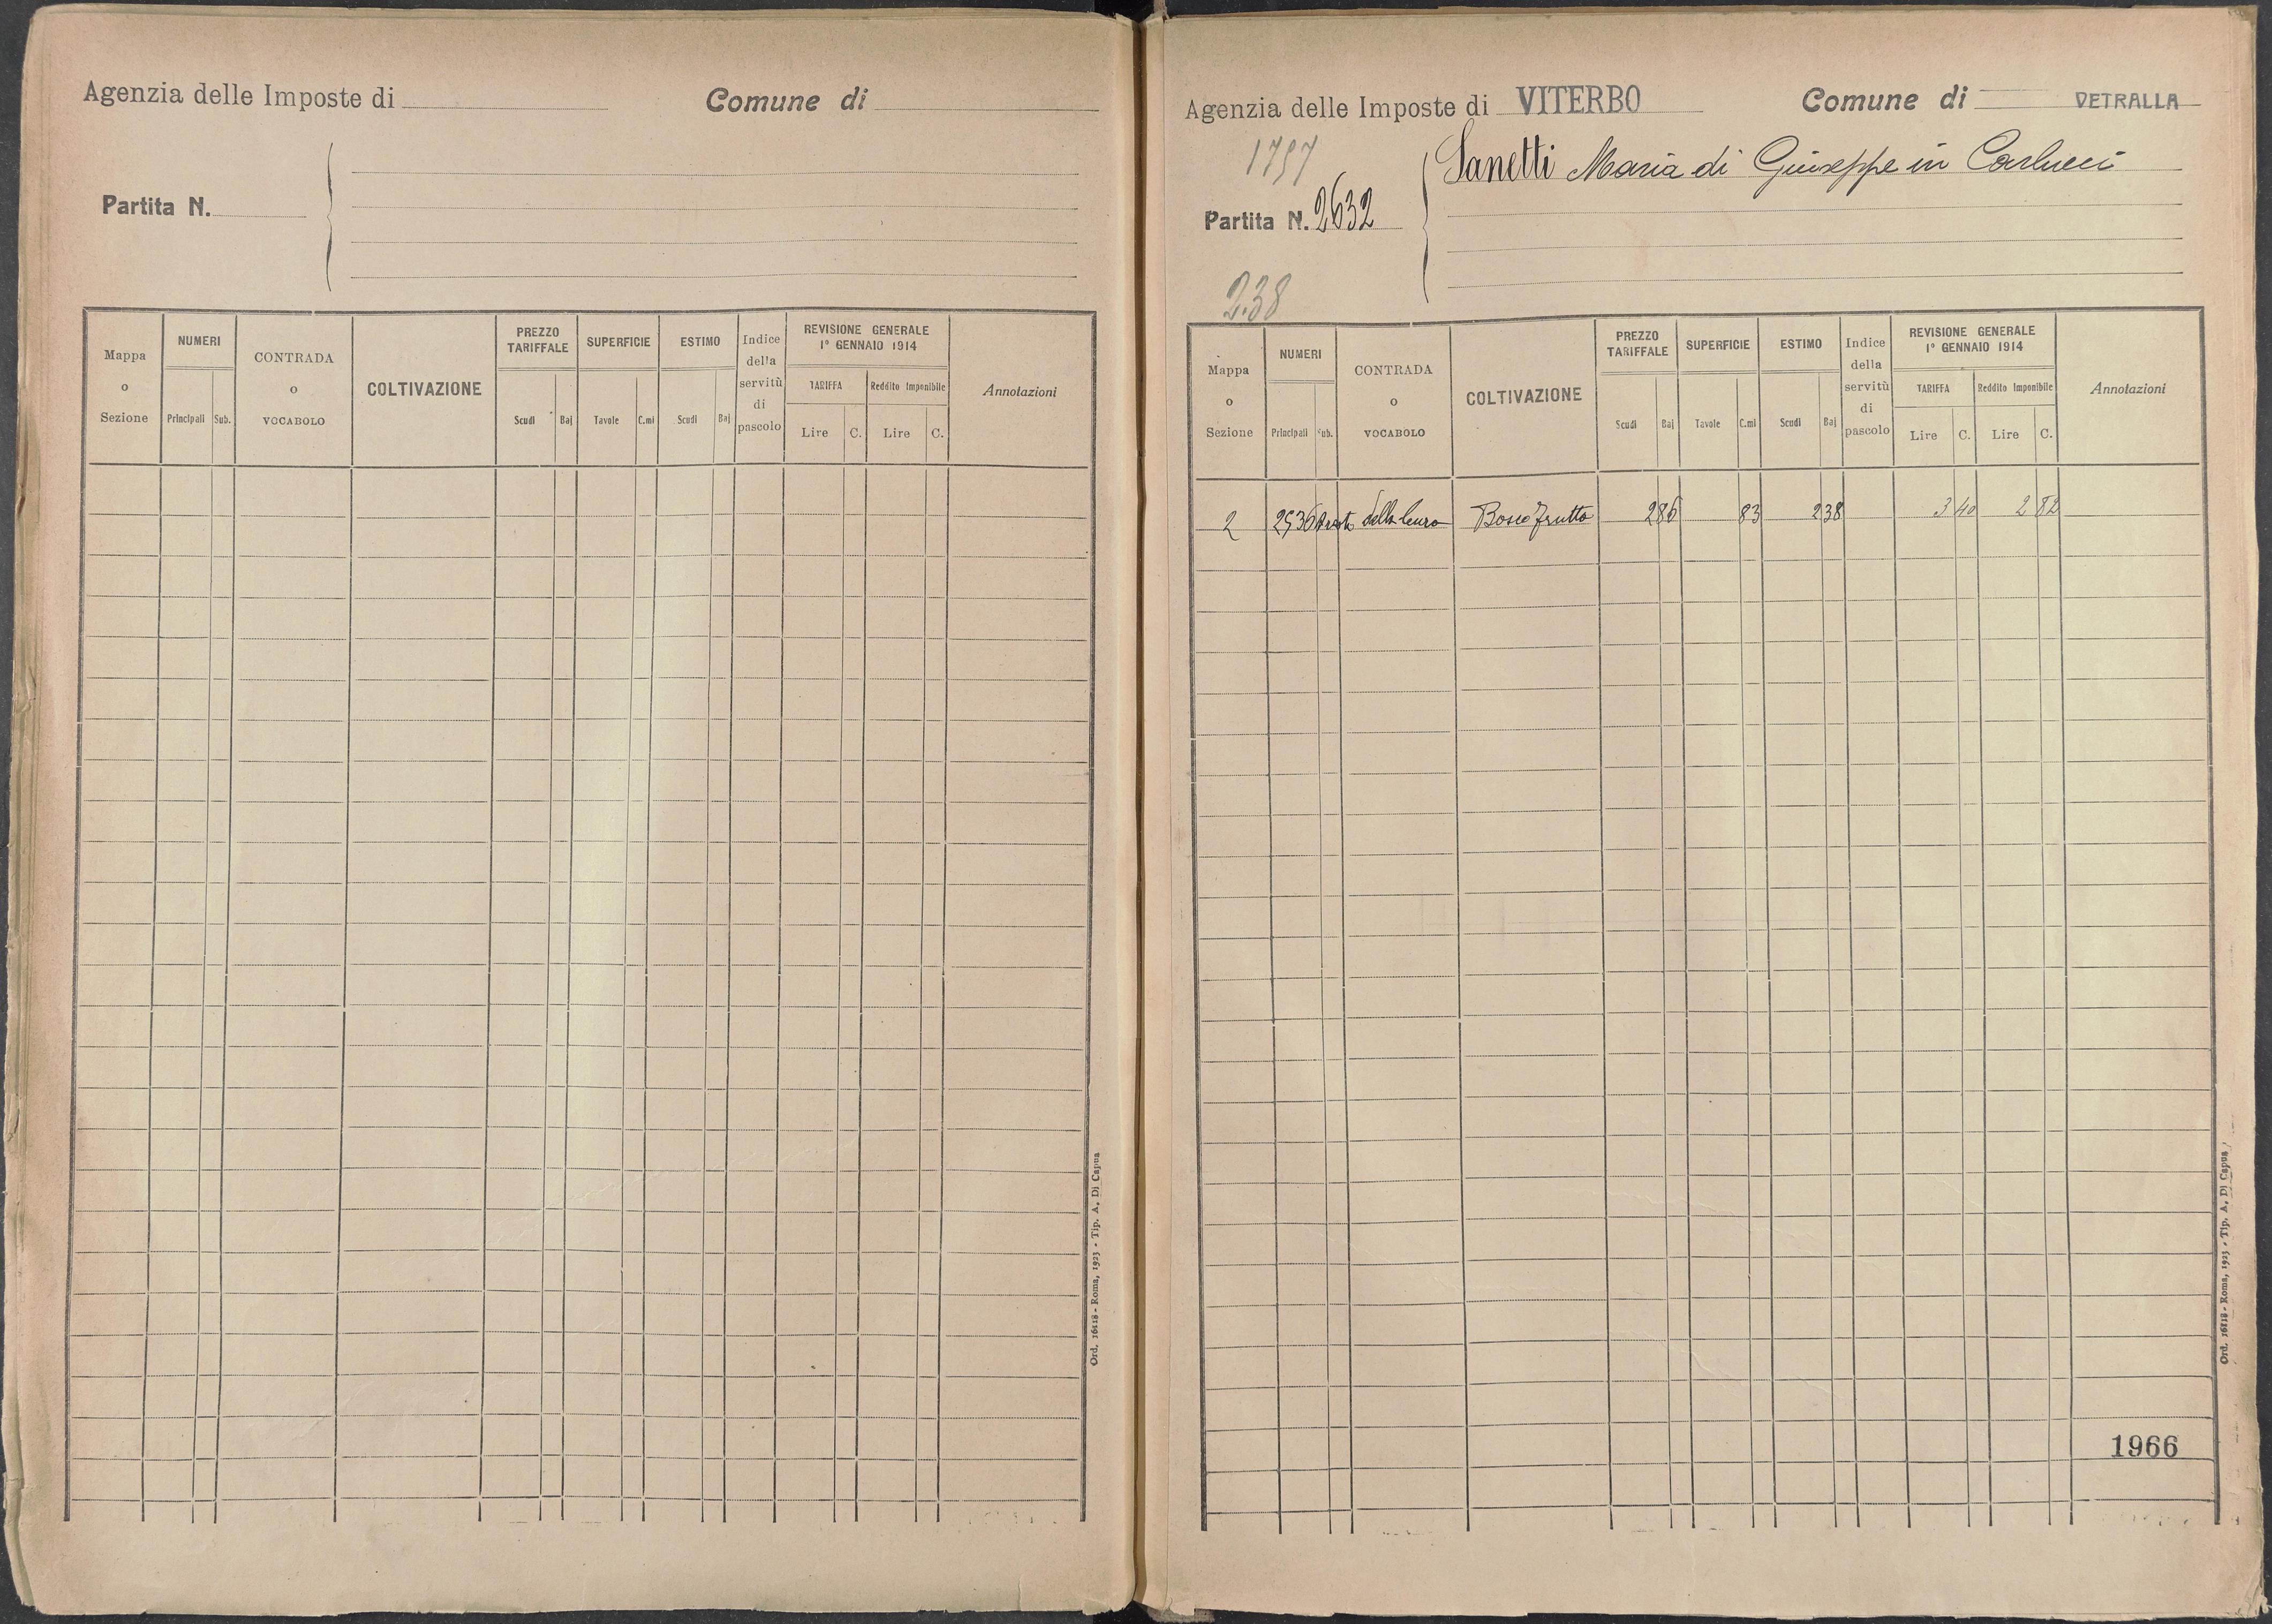 Agenzia delle Imposte di
Comune di
Partita N.
Mappa o Sezione
NUMERI
Principali Sub.
CONTRADA o VOCABOLO
COLTIVAZIONE
PREZZO TARIFFALE
Scudi Baj
SUPERFICIE
Tavole C.mi
ESTIMO
Scudi Baj
Indice della servitù di pascolo
REVISIONE GENERALE
1° GENNAIO 1914
TARIFFA
Lire C.
Reddito Imponibile
Lire C.
Annotazioni
Ord. 16118 - Roma, 1923 - Tip. A. Di Capua
Agenzia delle Imposte di VITERBO
Comune di VETRALLA
1797
Sanetti Maria di Giuseppe in Carlucci
Partita N. 2632
2.38
Mappa o Sezione
NUMERI
Principali Sub.
CONTRADA o VOCABOLO
COLTIVAZIONE
PREZZO TARIFFALE
Scudi Baj
SUPERFICIE
Tavole C.mi
ESTIMO
Scudi Baj
Indice della servitù di pascolo
REVISIONE GENERALE
1° GENNAIO 1914
TARIFFA
Lire C.
Reddito Imponibile
Lire C.
Annotazioni
2 2936 della Bosco frutto 2 86 83 2 38 3 40 2 82
1966
Ord. 16118 - Roma, 1923 - Tip. A. Di Capua